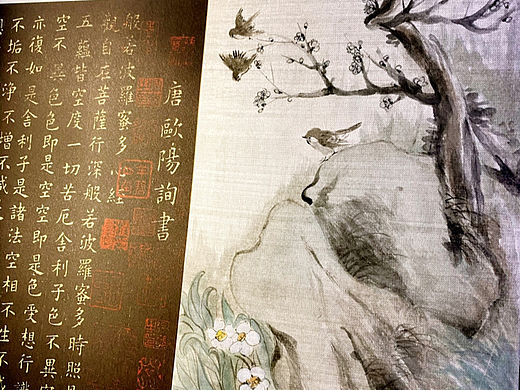 唐歐陽詢書
般若波羅蜜多心經
觀自在菩薩行深般若波羅蜜多時照見
五蘊皆空度一切苦厄舍利子色不異
空不異色色即是空空即是色受想行識
亦復如是舍利子是諸法空相不生不
不垢不淨不增不減